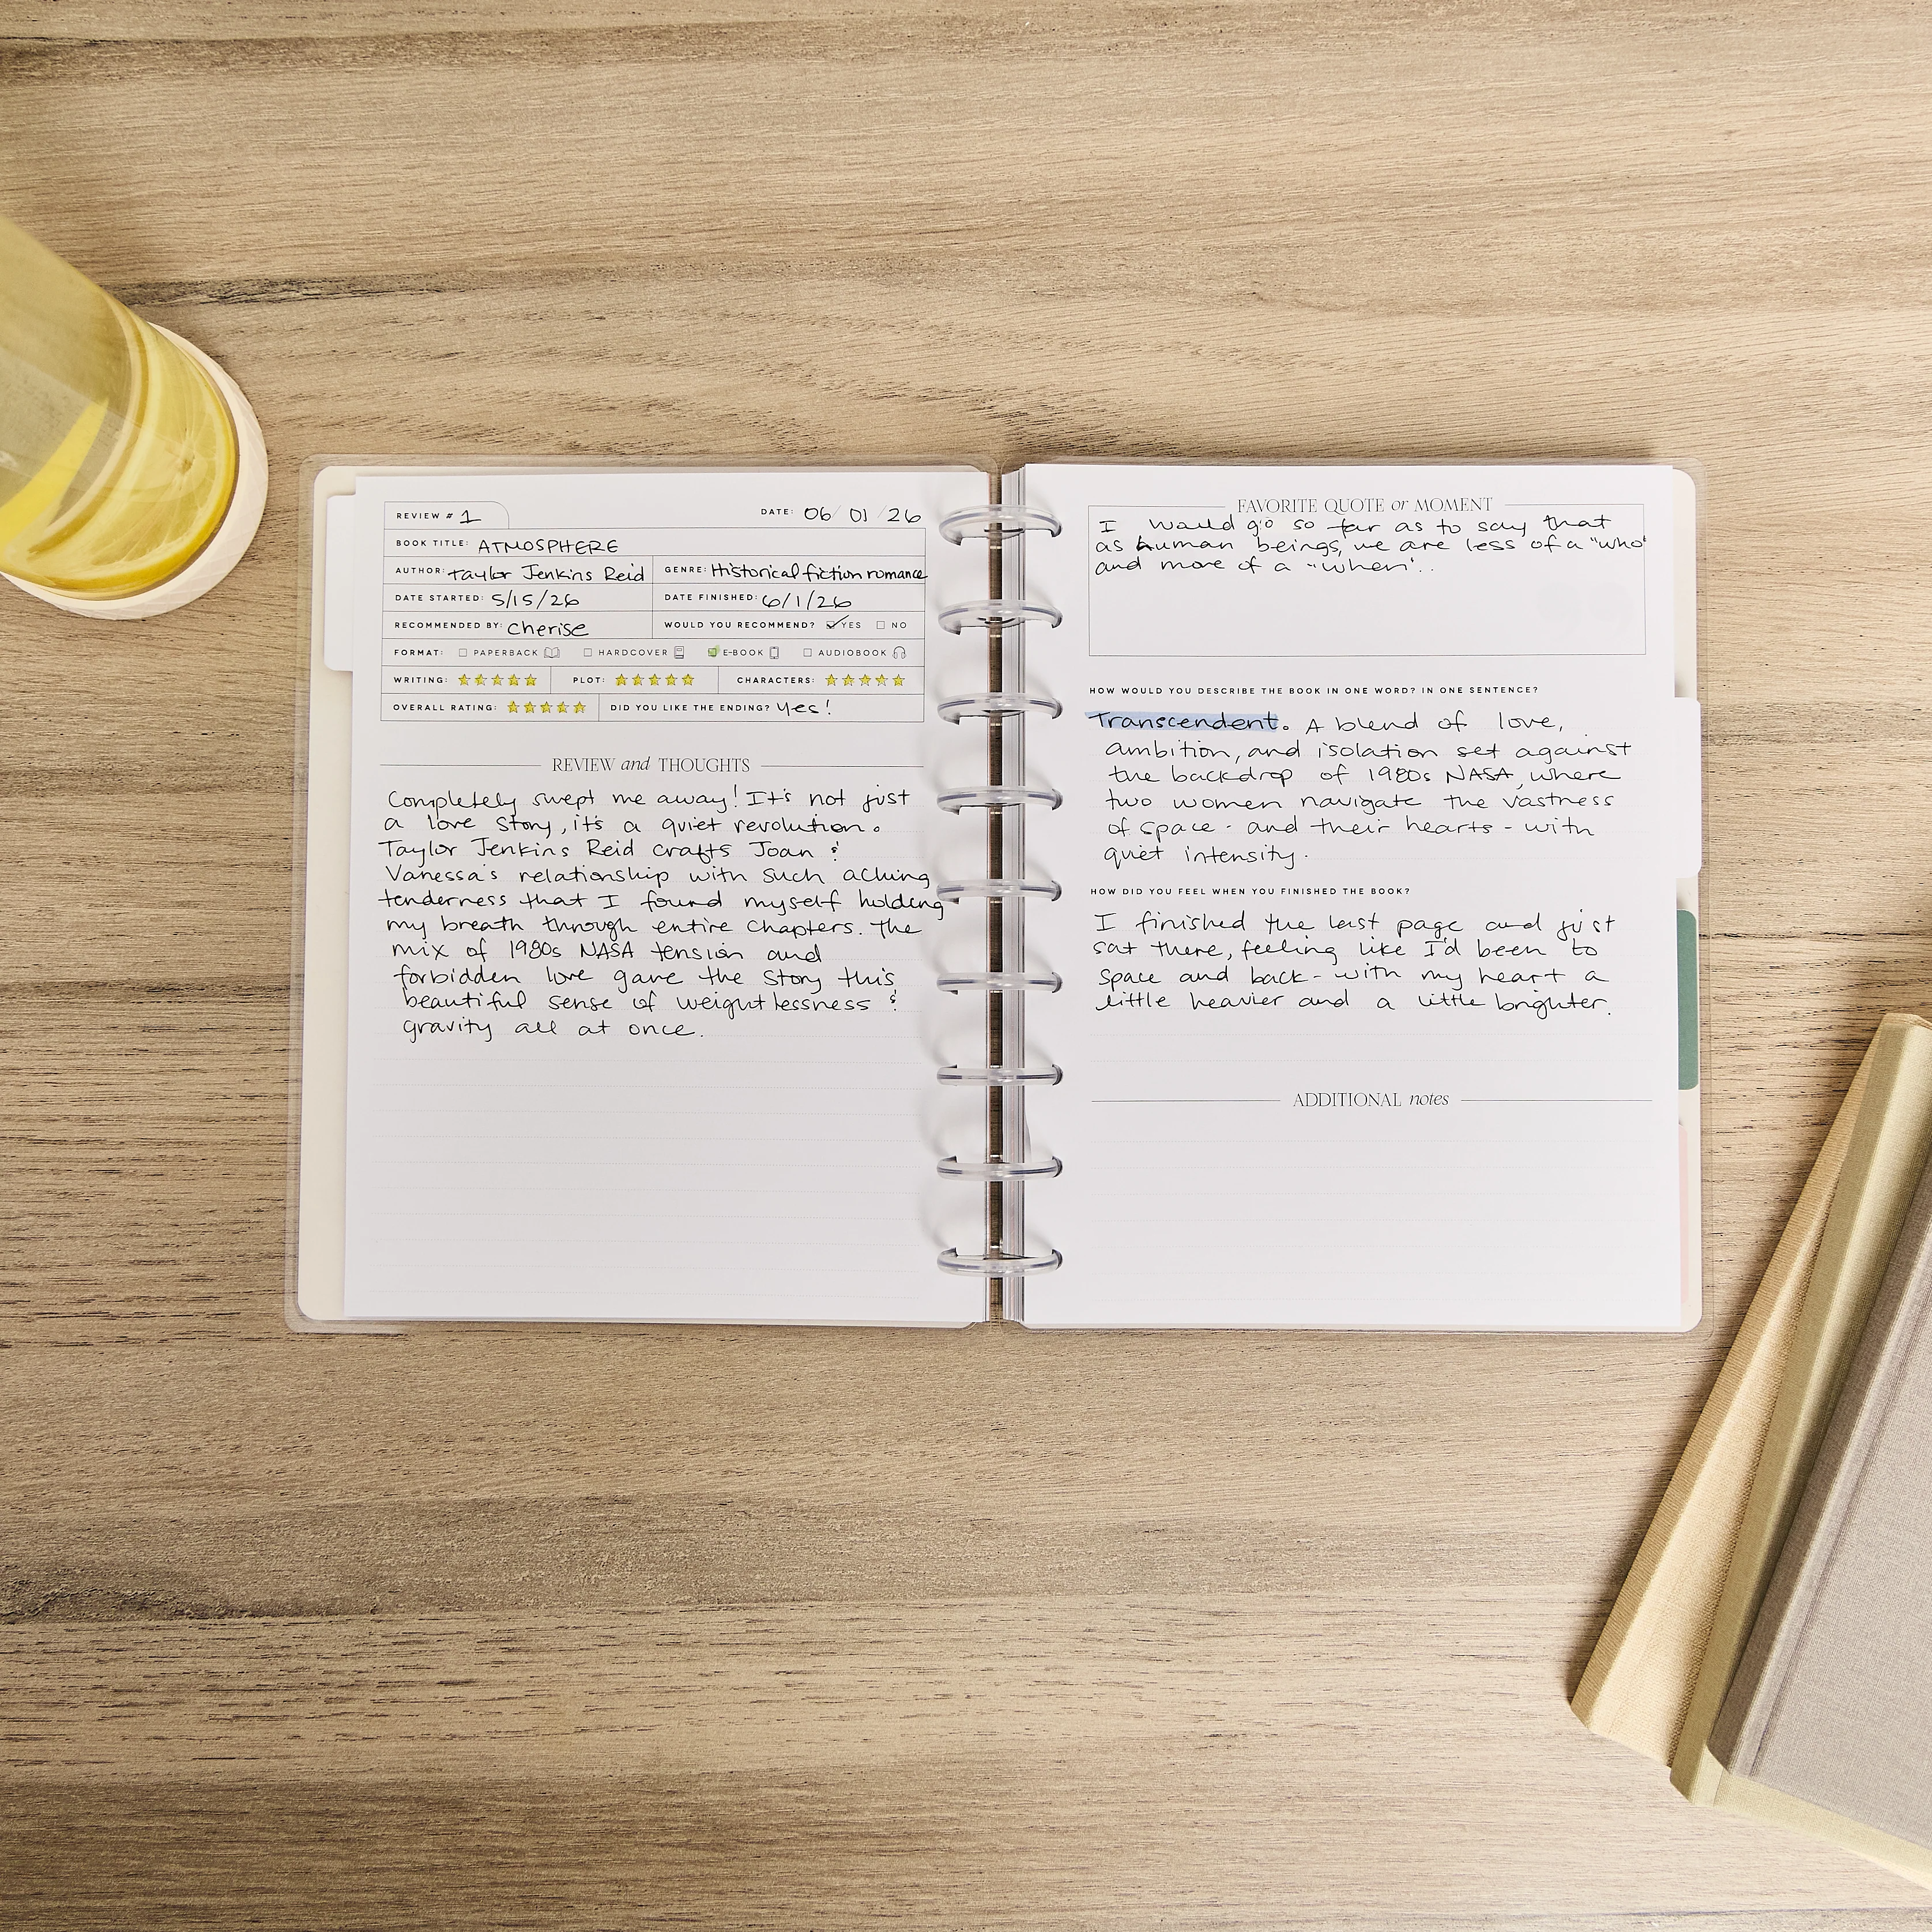 REVIEW # 1
DATE: 06/01/26
BOOK TITLE: ATMOSPHERE
AUTHOR: Taylor Jenkins Reid GENRE: Historical fiction romance
DATE STARTED: 5/15/26 DATE FINISHED: 6/1/26
RECOMMENDED BY: Cherise WOULD YOU RECOMMEND? YES NO
FORMAT: PAPERBACK HARDCOVER E-BOOK AUDIOBOOK
WRITING: PLOT: CHARACTERS:
OVERALL RATING: DID YOU LIKE THE ENDING? Yes!
REVIEW and THOUGHTS
Completely swept me away! It's not just
a love story, it's a quiet revolution.
Taylor Jenkins Reid crafts Joan &
Vanessa's relationship with such aching
tenderness that I found myself holding
my breath through entire chapters. The
mix of 1980s NASA tension and
forbidden love gave the story this
beautiful sense of weightlessness &
gravity all at once.
FAVORITE QUOTE or MOMENT
I would go so far as to say that
as human beings, we are less of a "who"
and more of a "when"..
HOW WOULD YOU DESCRIBE THE BOOK IN ONE WORD? IN ONE SENTENCE?
Transcendent. A blend of love,
ambition, and isolation set against
the backdrop of 1980s NASA, where
two women navigate the vastness
of space - and their hearts - with
quiet intensity.
HOW DID YOU FEEL WHEN YOU FINISHED THE BOOK?
I finished the last page and just
sat there, feeling like I'd been to
space and back - with my heart a
little heavier and a little brighter.
ADDITIONAL notes